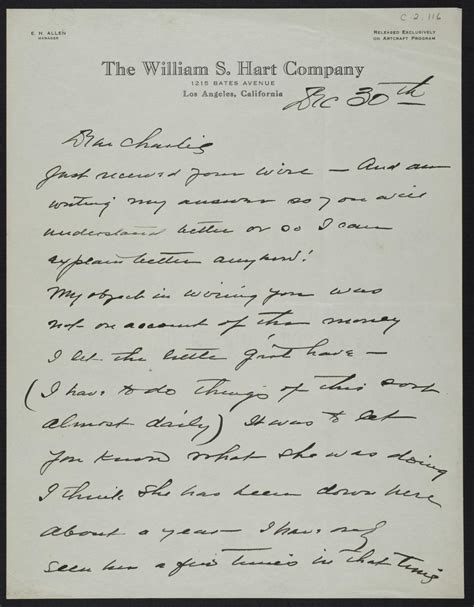 C 2,116
E. N. ALLEN
MANAGER
RELEASED EXCLUSIVELY
ON ARTCRAFT PROGRAM
The William S. Hart Company
1215 BATES AVENUE
Los Angeles, California
Dec 30th
Dear Charlie
Just received your wire – And am
writing my answer so you will
understand better or so I can
explain better anyhow!
My object in wiring you was
not on account of the money
I let the little girl have –
(I have to do things of this sort
almost daily) It was to let
you know what she was doing
I think she has been down here
about a year – I have only
seen her a few times in that time